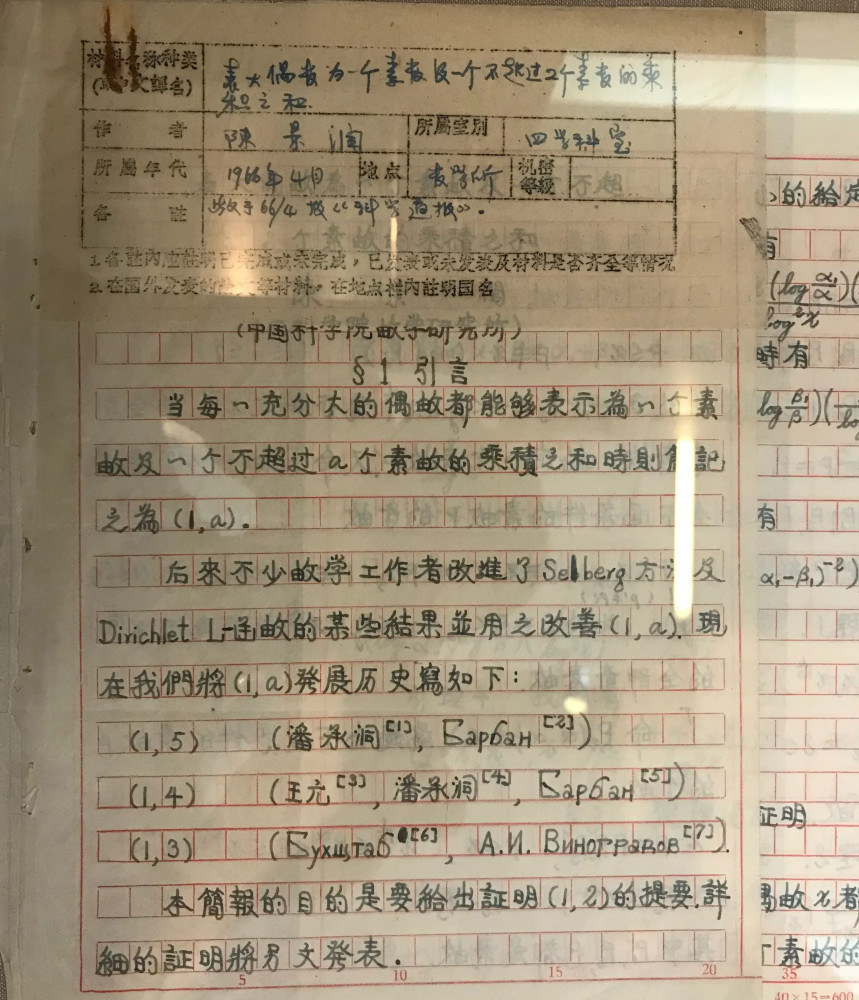 材料名称种类
(或中文譯名)
表大偶数为一个素数及一个不超过2个素数的乘
积之和.
作者 陳景润 所屬室别 四学科室
所屬年代 1966年4月 地点 数学所 机密
等級
备註 登于66/4 《科学通报》.
1.备註內应註明已完成或未完成，已发表或未发表及材料是否齐全等情况
2.在国外发表的 等材料，在地点栏內註明国名
(中国科学院数学研究所)
§1 引言
当每一充分大的偶数都能够表示為一个素
数及一个不超过a个素数的乘積之和時則簡記
之為(1,a).
后來不少数学工作者改進了Selberg方法及
Dirichlet L-函数的某些結果並用之改善(1,a).現
在我們將(1,a)發展历史寫如下:
(1,5) (潘承洞[1], Барбан[2])
(1,4) (王元[3], 潘承洞[4], Барбан[5])
(1,3) (Бухштаб[6], А.И. Виноградов[7]).
本簡報的目的是要給出証明(1,2)的提要.詳
細的証明將另文發表.
5 10 15 20
的給定
有
(log
log²x
時有
log
有
α₁-β₁)⁻²)
証明
偶数x者
素数的
35
40×15=600